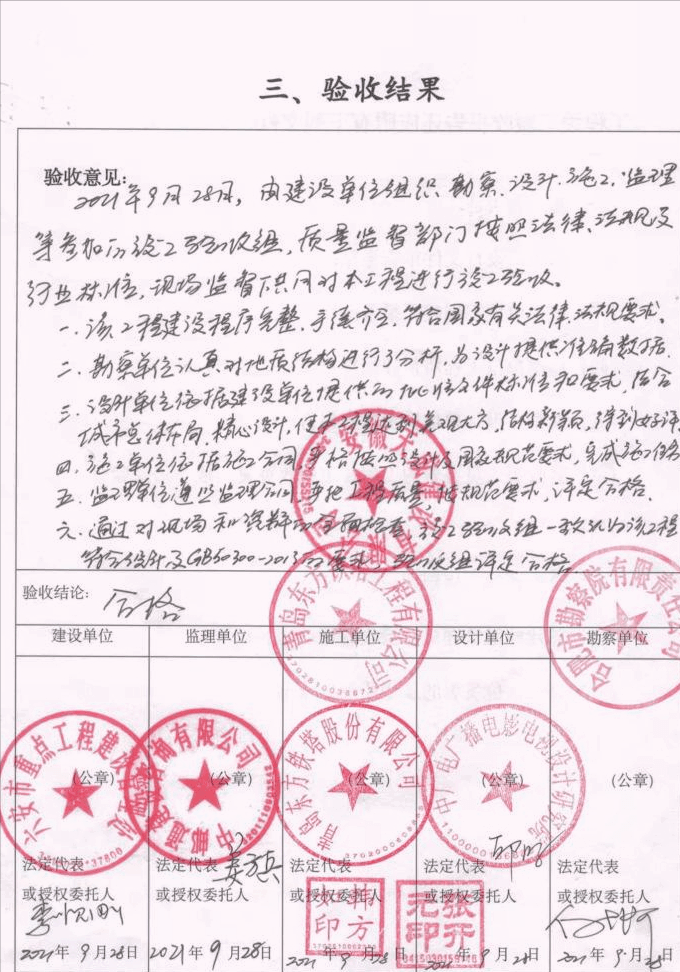 三、验收结果
验收意见:
2021年9月28日，由建设单位组织勘察、设计、施工、监理
等参加的竣工验收组，质量监督部门按照法律、法规及
行业标准，现场监督下共同对本工程进行竣工验收。
一、该工程建设程序完整，手续齐全，符合国家有关法律、法规要求。
二、勘察单位认真对地质结构进行了分析，为设计提供准确数据
三、设计单位依据建设单位提供的批准文件标准和要求，结合
城市总体布局，精心设计，使本工程达到美观大方，结构新颖，得到好评
四、施工单位依据施工合同，严格按照设计及国家规范要求，完成施工任务
五、监理单位遵照监理合同，工程质量规范要求，评定合格。
六、通过对现场和资料的全面检查，竣工验收组一致认为该工程
符合设计及GB50300-2013的要求，验收组评定合格
验收结论: 合格
建设单位 监理单位 施工单位 设计单位 勘察单位
青岛东方铁塔工程有限公司
合肥市勘察院有限责任公司
六安市重点工程建设
中邮通建咨询有限公司
青岛东方铁塔股份有限公司
中广电广播电影电视设计研究院
(公章) (公章) (公章) (公章) (公章)
法定代表 法定代表 法定代表 法定代表 法定代表
或授权委托人 或授权委托人 或授权委托人 或授权委托人 或授权委托人
韩方如印
张元行印
2021年9月28日 2021年9月28日 2021年9月28日 2021年9月28日 2021年9月28日